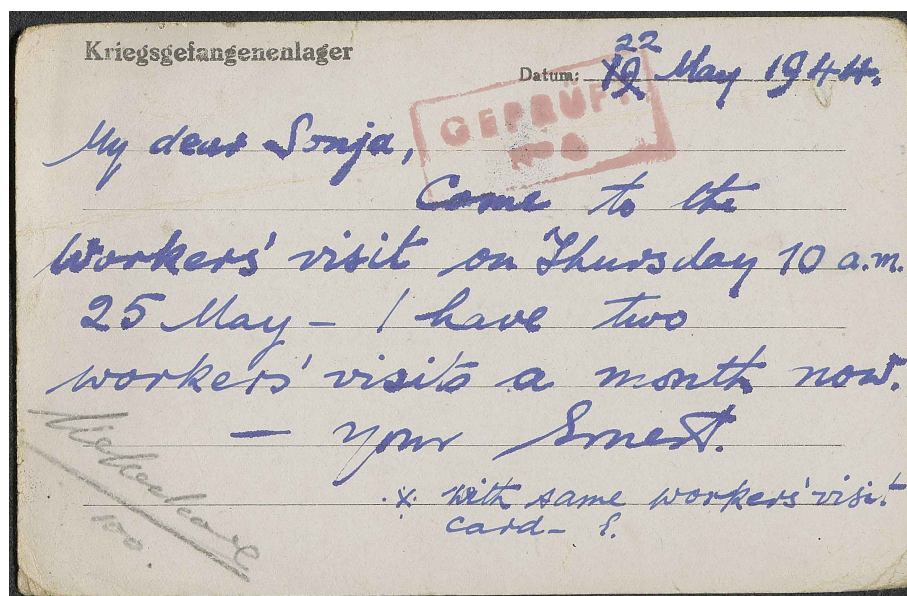 Kriegsgefangenenlager
22
Datum: 19 May 1944.
GEPRÜFT
My dear Sonja,
Come to the
Workers' visit on Thursday 10 a.m.
25 May – I have two
workers' visits a month now.
— your Ernest.
x with same workers' visit
card – E.
100.